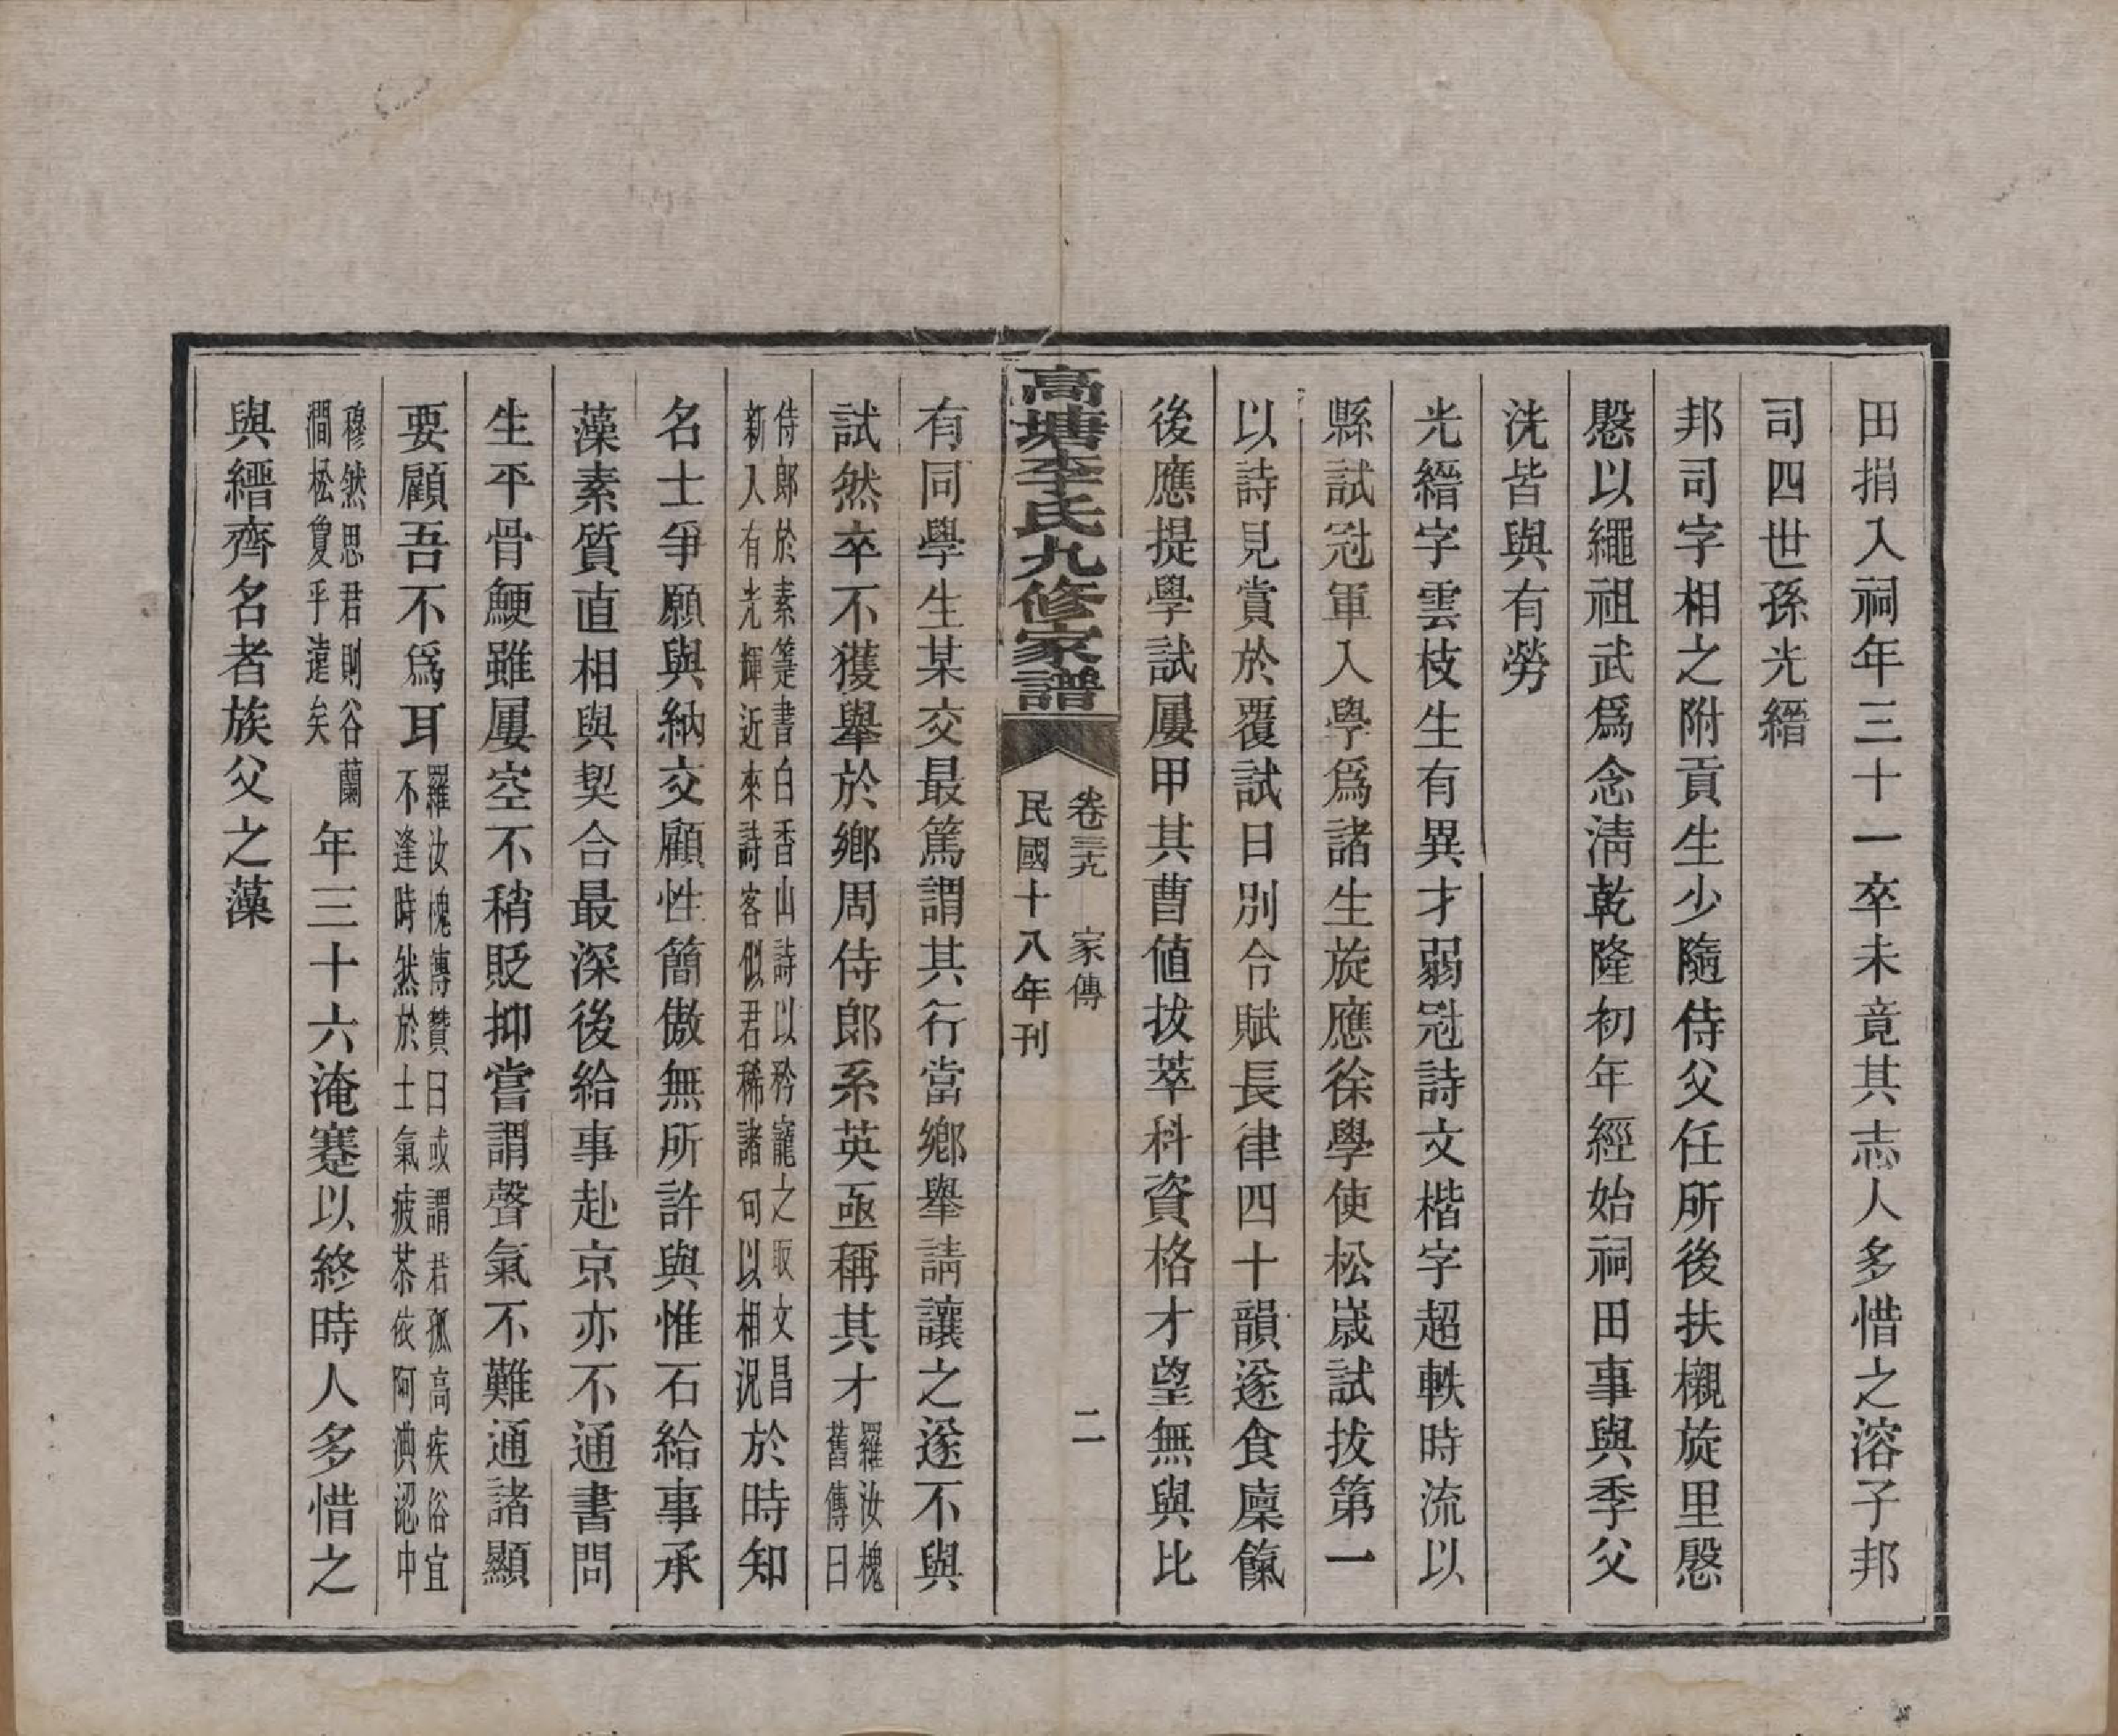 田捐入祠年三十一卒未竟其志人多惜之溶子邦
司四世孫光縉
邦司字相之附貢生少隨侍父任所後扶櫬旋里慇
慇以繩祖武爲念淸乾隆初年經始祠田事與季父
洗皆與有勞
光縉字雲枝生有異才弱冠詩文楷字超軼時流以
縣試冠軍入學爲諸生旋應徐學使松嵗試拔第一
以詩見賞於覆試日別令賦長律四十韻遂食廩餼
後應提學試屢甲其曹値拔萃科資格才望無與比
高塘李氏九修家譜
卷三九 家傳
二
民國十八年刊
有同學生某交最篤謂其行當鄕舉請讓之遂不與
試然卒不獲舉於鄕周侍郎系英亟稱其才
羅汝槐
舊傳曰
侍郎於素箑書白香山詩以矜寵之取文昌
新入有光輝近來詩客似君稀諸句以相況
於時知
名士爭願與納交顧性簡傲無所許與惟石給事承
藻素質直相與契合最深後給事赴京亦不通書問
生平骨鯁雖屢空不稍貶抑嘗謂聲氣不難通諸顯
要顧吾不爲耳
羅汝槐傳贊曰或謂君孤高疾俗宜
不逢時然於士氣疲苶依阿淟涊中
穆然思君則谷蘭
澗松敻乎遠矣
年三十六淹蹇以終時人多惜之
與縉齊名者族父之藻